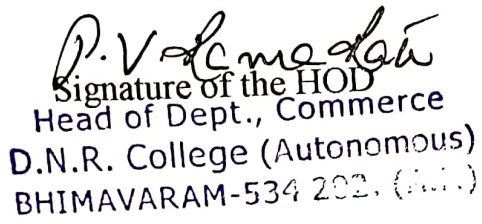 P.V
Signature of the HOD
Head of Dept., Commerce
D.N.R. College (Autonomous)
BHIMAVARAM-534 202.